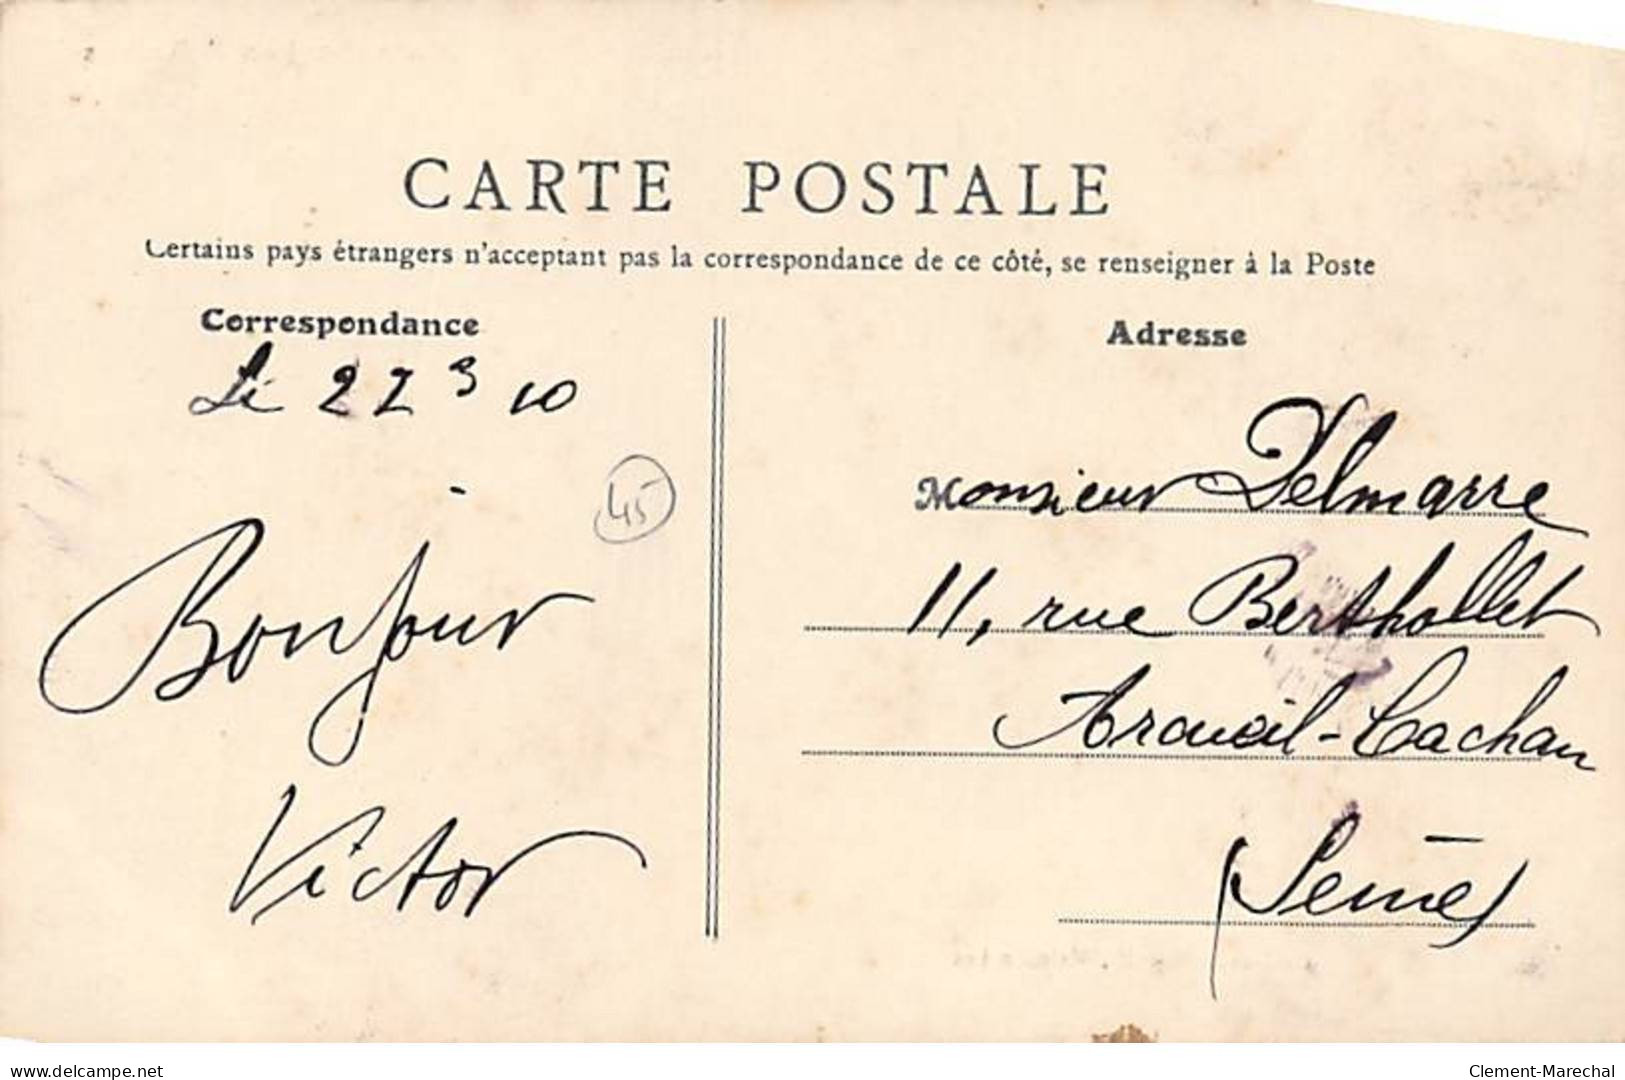 CARTE POSTALE
Certains pays étrangers n'acceptant pas la correspondance de ce côté, se renseigner à la Poste
Correspondance
Le 22 3 10
45
Bonjour
Victor
Adresse
Monsieur Delmarre
11, rue Berthollet
Arcueil-Cachan
(Seine)
www.delcampe.net
Clement-Marechal